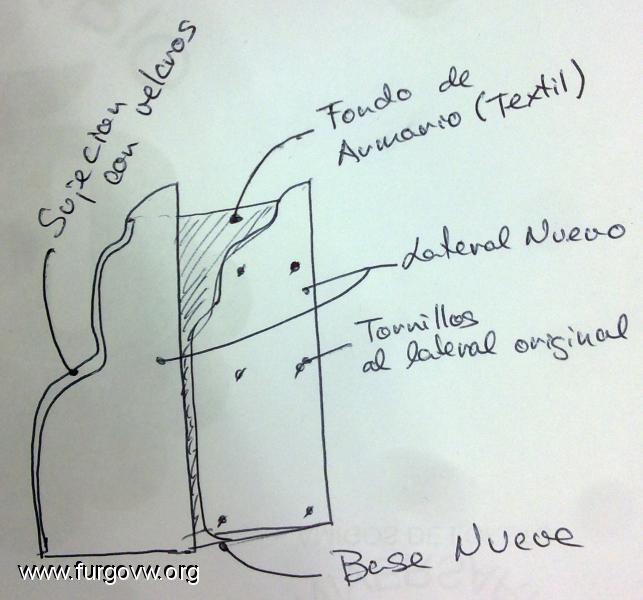 Sujecion
con velcros
Fondo de
Armario (Textil)
Lateral Nuevo
Tornillos
al lateral original
Base Nueva
www.furgovw.org